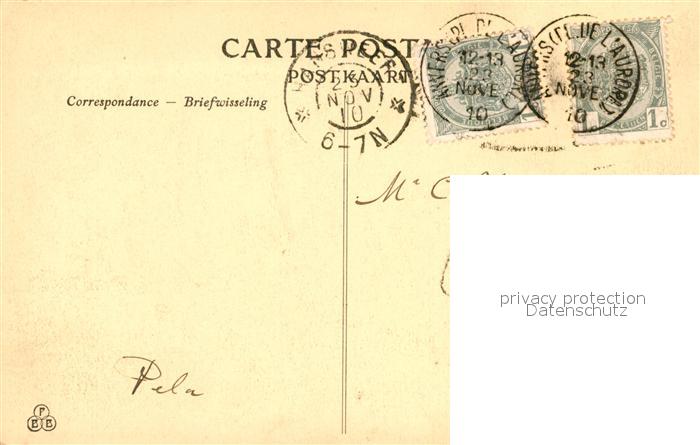 CARTE POSTA
POSTKAART
Correspondance — Briefwisseling
23
NOV
10
6-7N
ANVERS (PL. DE L'AURORE)
12-13
23
NOVE
10
ANVERS (PL. DE L'AURORE)
12-13
23
NOVE
10
1c
Mr C
privacy protection
Datenschutz
Pela